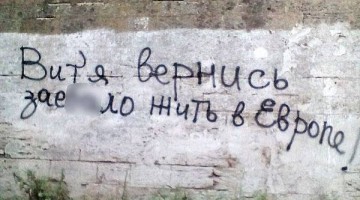 Вит'я вернись
зае ло жить в Европе!